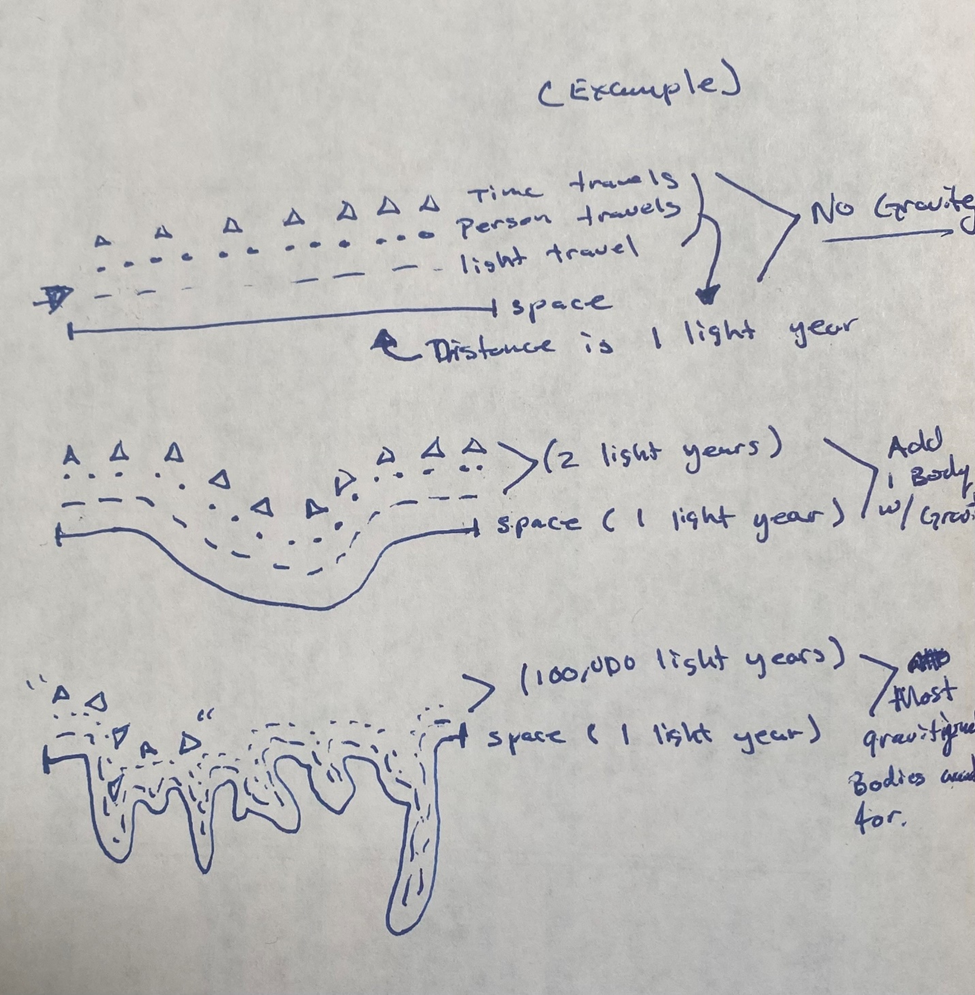 (Example)
Time travels
Person travels
light travel
No Gravity
space
Distance is 1 light year
(2 light years)
space (1 light year)
Add
1 Body
w/
(100,000 light years)
space (1 light year)
Most
Bodies
for.